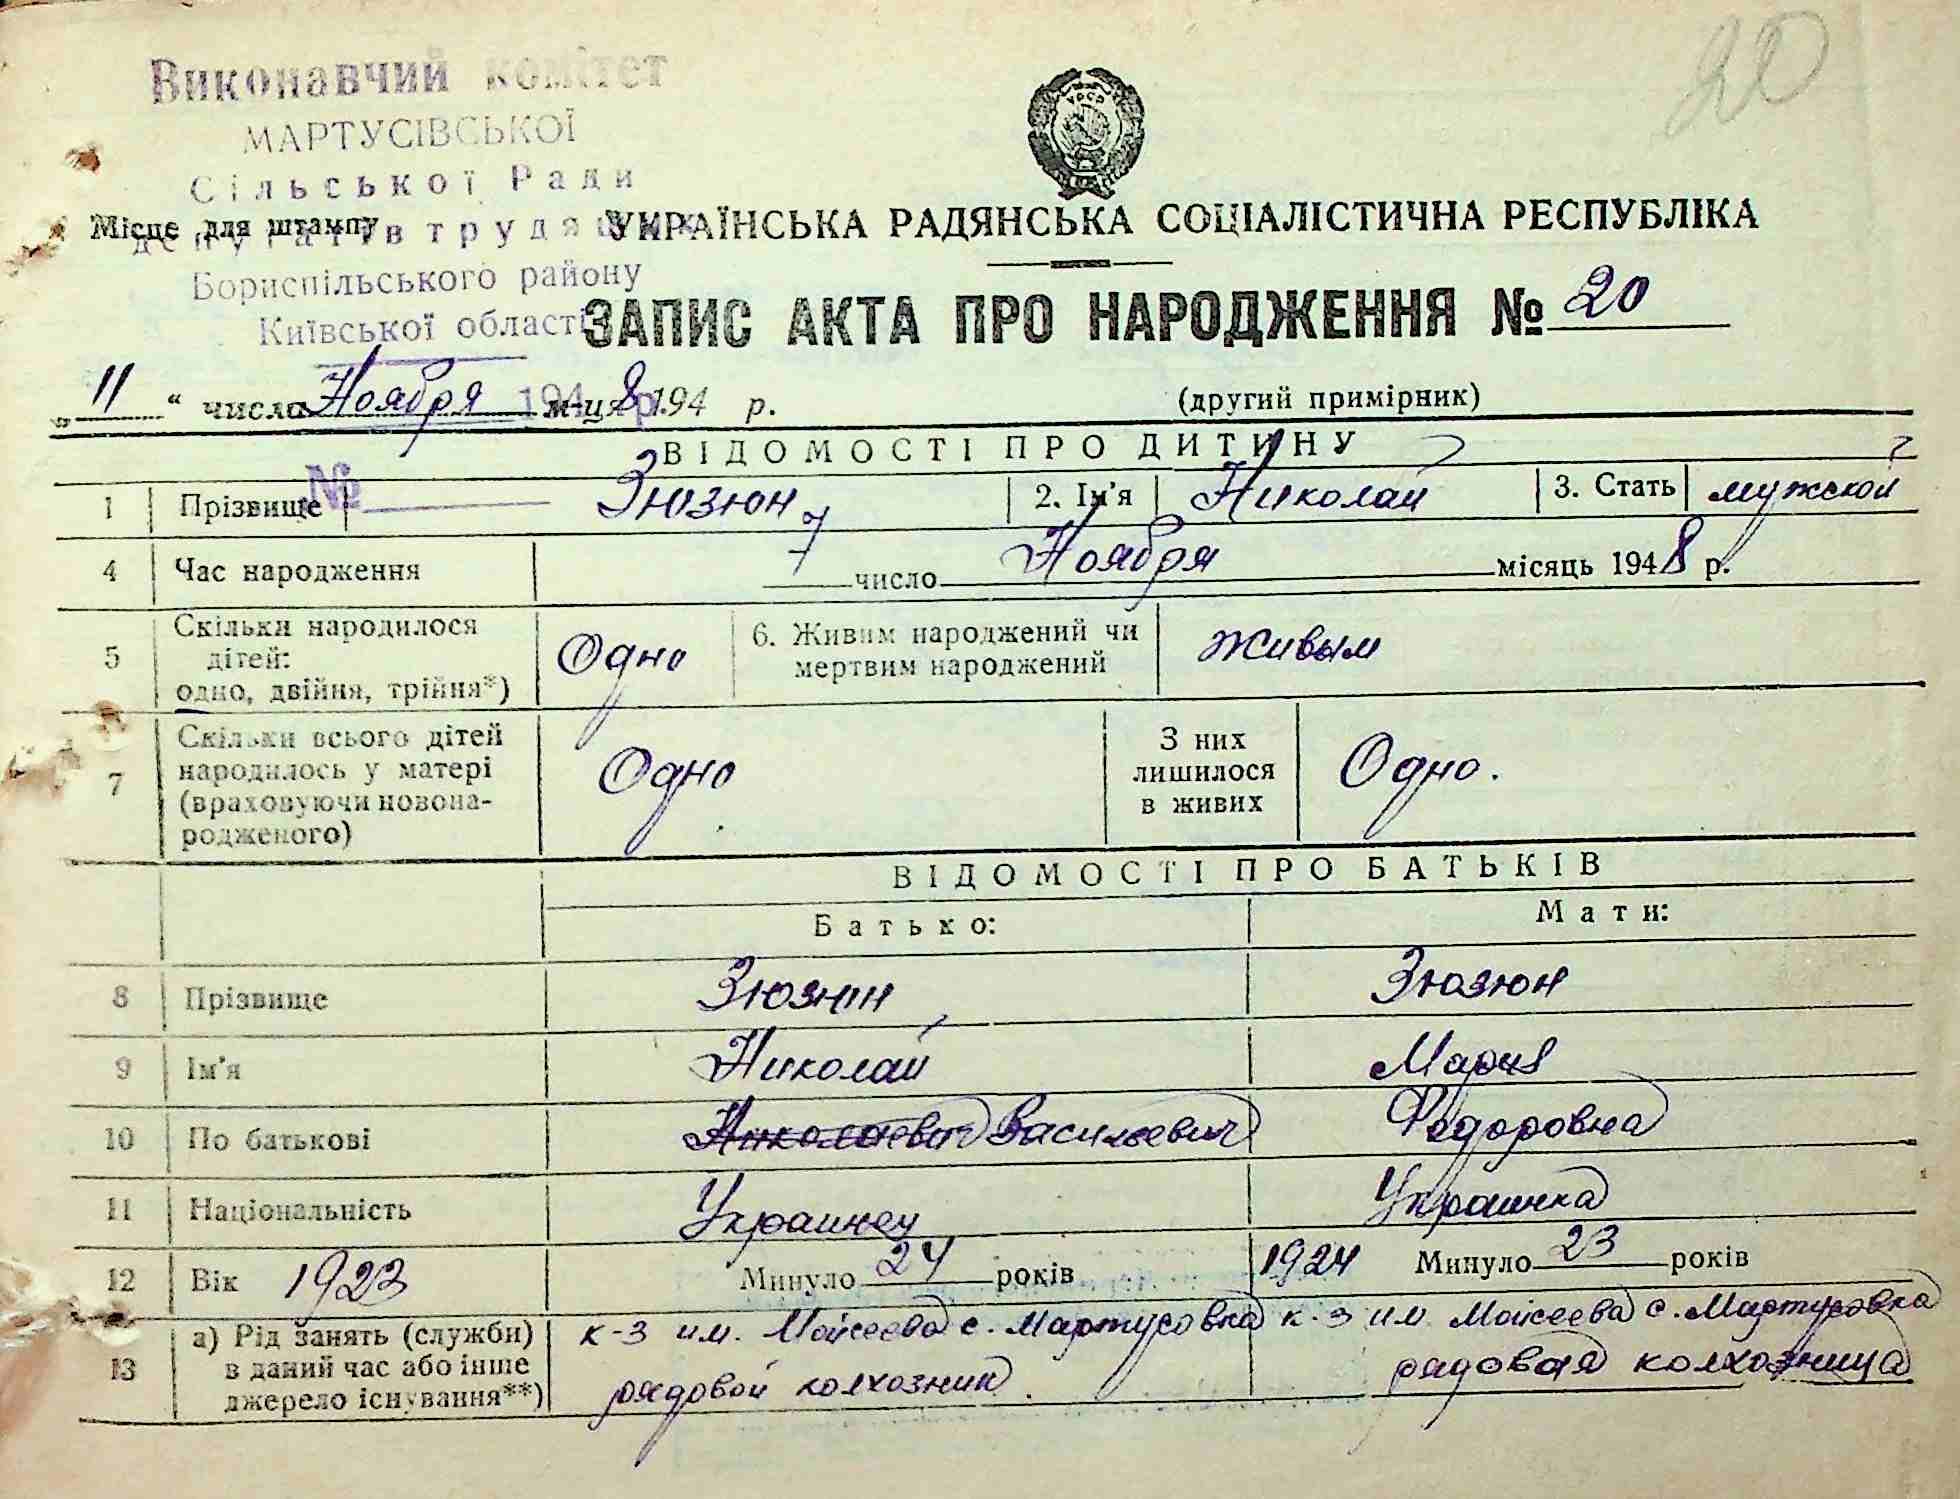 20
Виконавчий комітет
МАРТУСІВСЬКОЇ
Сільської Ради
депутатів трудящих
Бориспільського району
Київської області
194 р.
№
УРСР
Місце для штампу
УКРАЇНСЬКА РАДЯНСЬКА СОЦІАЛІСТИЧНА РЕСПУБЛІКА
ЗАПИС АКТА ПРО НАРОДЖЕННЯ № 20
„ 11 “ число Ноября м-ця 8 194 р. (другий примірник)
ВІДОМОСТІ ПРО ДИТИНУ
1 Прізвище Зюзюн 2. Ім'я Николай 3. Стать мужской
4 Час народження 7 число Ноября місяць 1948 р.
5 Скільки народилося дітей: одно, двійня, трійня*) Одно 6. Живим народжений чи мертвим народжений Живым
7 Скільки всього дітей народилось у матері (враховуючи новонародженого) Одно З них лишилося в живих Одно.
ВІДОМОСТІ ПРО БАТЬКІВ
Батько: Мати:
8 Прізвище Зюзюн Зюзюн
9 Ім'я Николай Мария
10 По батькові Николаевич Васильевич Федоровна
11 Національність Украинец Украинка
12 Вік 1923 Минуло 24 років 1924 Минуло 23 років
13 а) Рід занять (служби) в даний час або інше джерело існування**) к-з им. Моисеева с. Мартусовка рядовой колхозник. к-з им. Моисеева с. Мартусовка рядовая колхозница